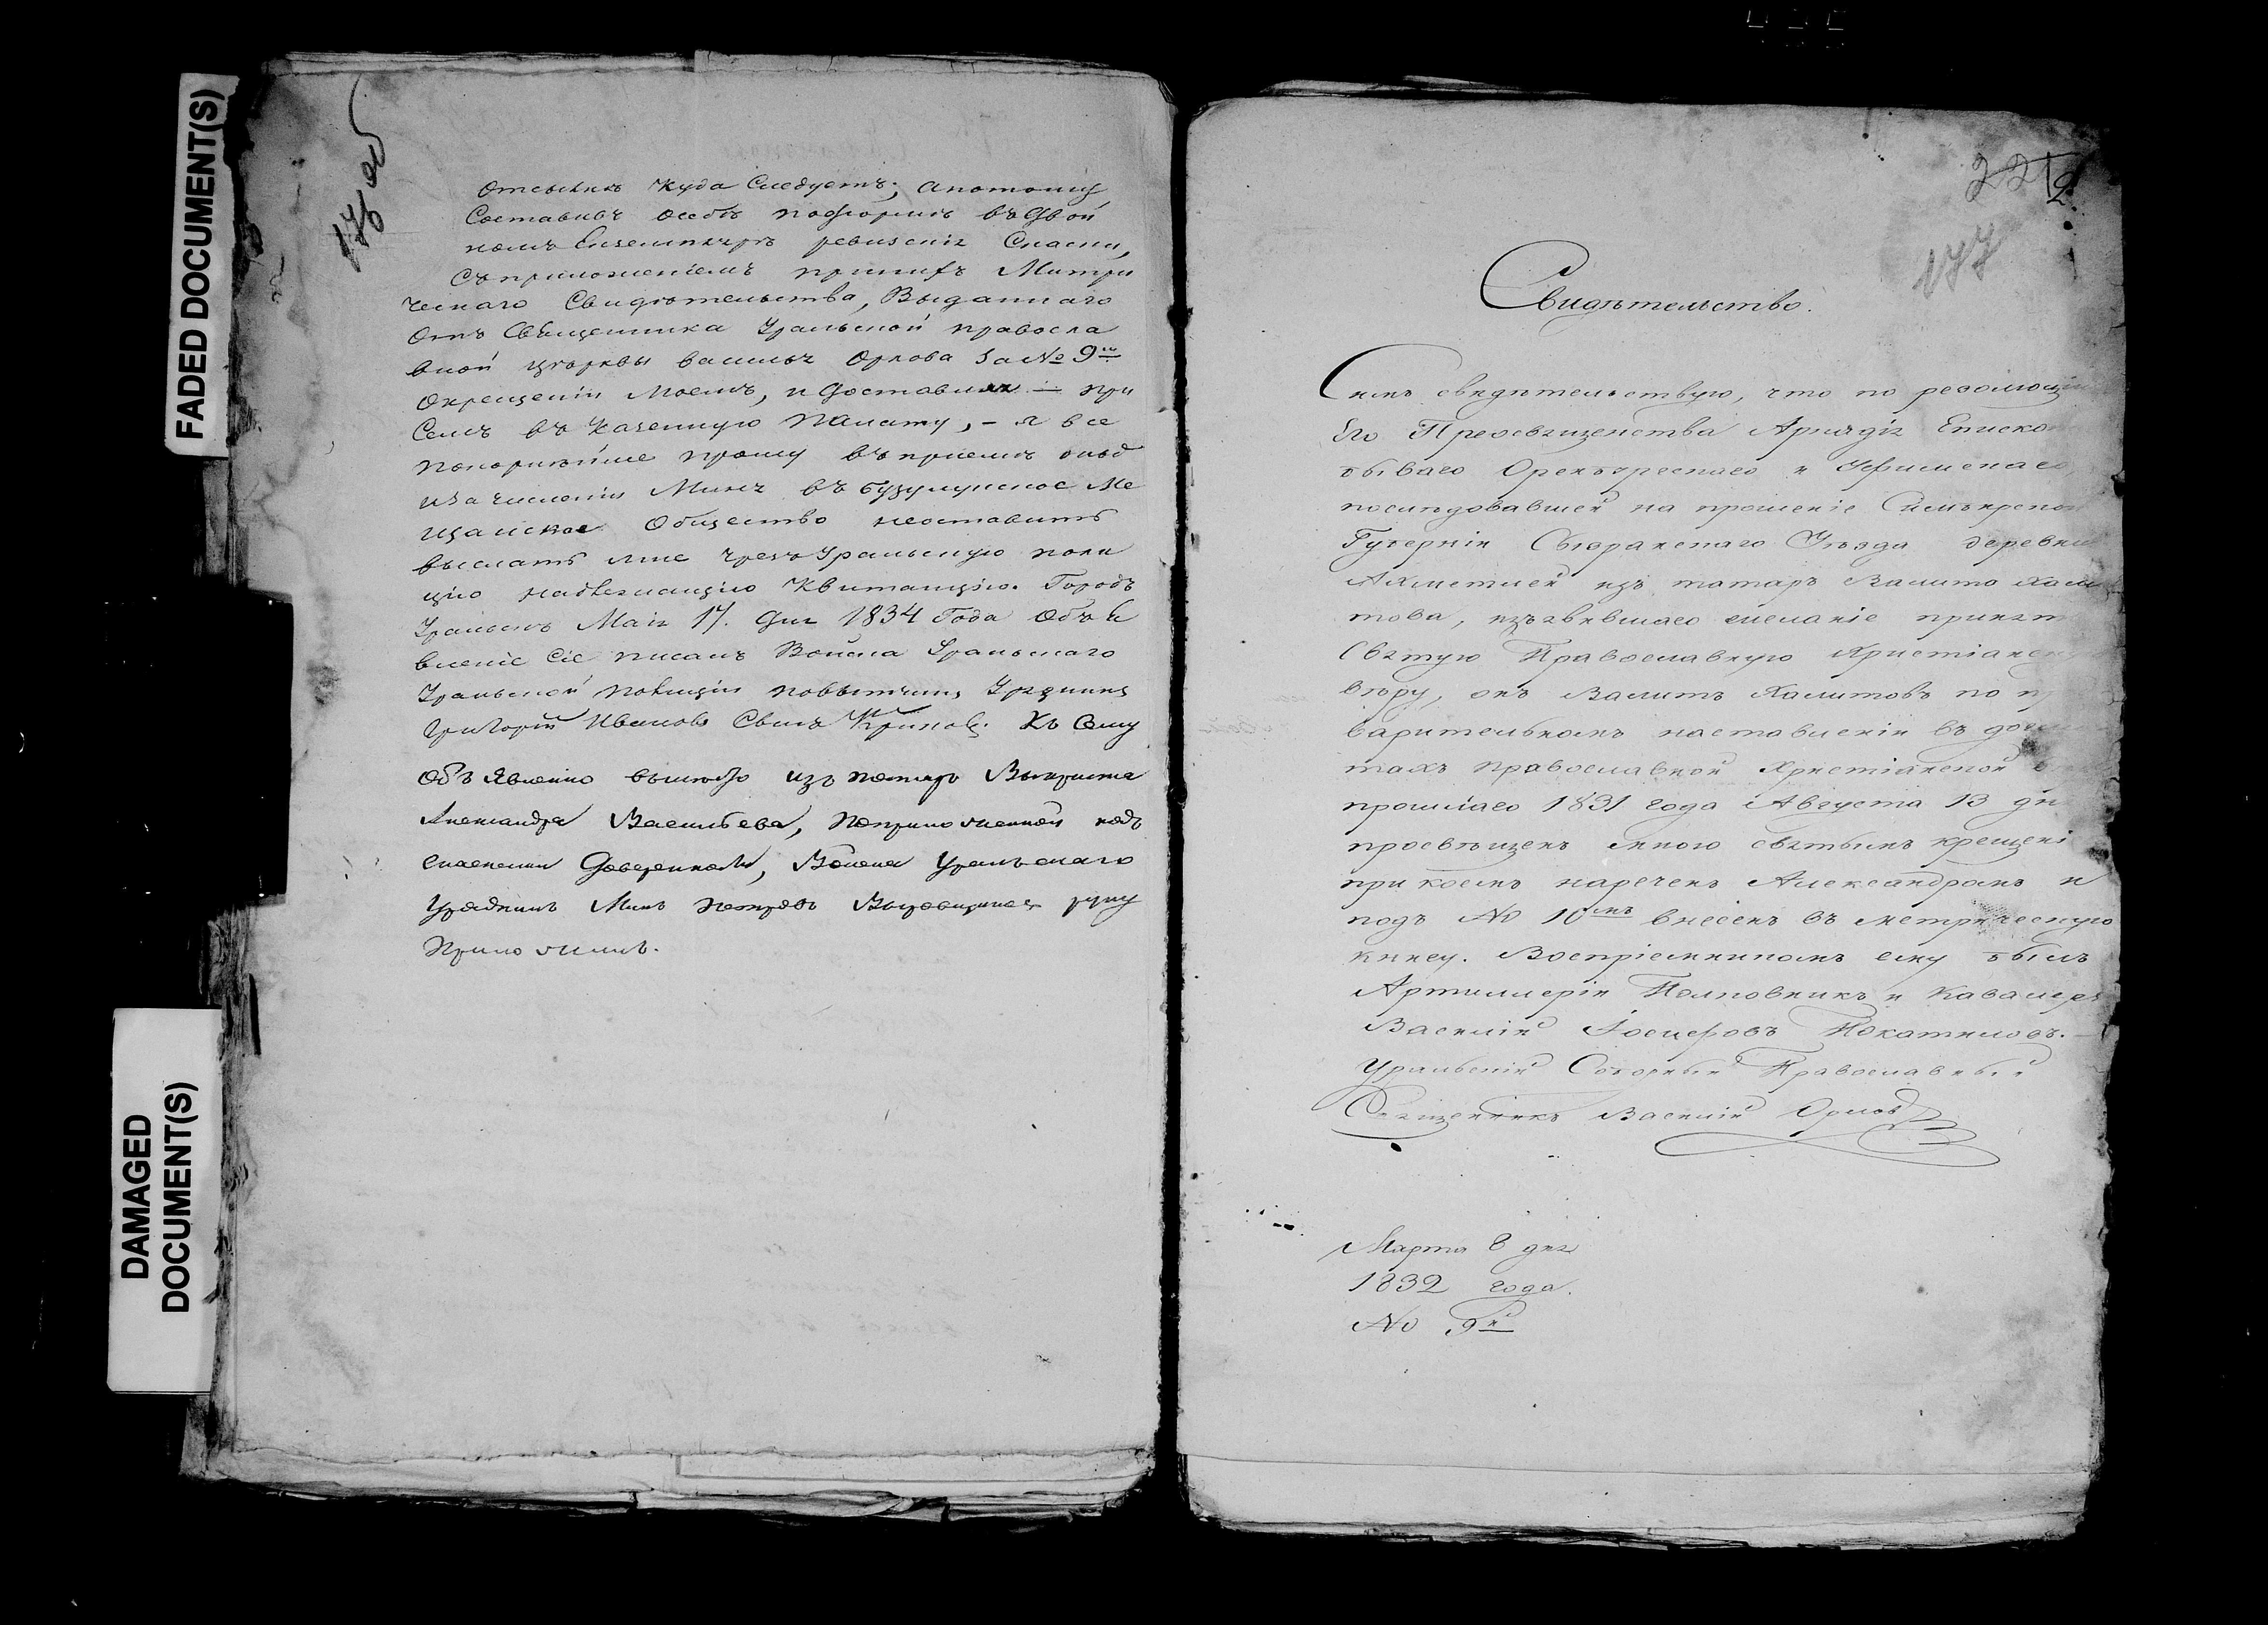 FADED DOCUMENT(S)
DAMAGED
DOCUMENT(S)
176 об
отсылкъ куда Следуетъ; апотому
Составивъ особъ пофориъ въдвой
номъ Екземпляръ ревизскія Сказки,
Съприложеніемъ принихъ Митри
ческаго Свидѣтельства, Выданнаго
Отъ Священника Уральской правосла
вной церквы василья Орлова за № 9м
Окрещеніи Моемъ, и доставляя при
Семъ въ Казенную Палату, - я все
покорнѣйше прошу въпріемъ оной
иза численіи Миня въ бузулукское Ме
щанское Общество неоставить
выслать мне чрезъ Уральскую поли
цію надлежащію Квитанцію. Городъ
Уральскъ Маія 17. дня 1834 Года Объя
вленіе Сіе писалъ Войска Уральскаго
Уральской Полиціи повытчикъ Урядникъ
Григорій Ивановъ Сынъ К Сему
Объявленію вместо изъ татаръ Выкриста
Александра Васильева,
Войска Уральскаго
Урядникъ руку
Приложилъ.
221
177
Свидѣтельство.
Симъ свидѣтельствую, что по резолюціи
Его Преосвященства Аркадія Еписко
бываго Оренбургскаго и Уфимскаго
последовавшей на прошеніе Симбирской
Губерніи Сызранскаго Уѣзда деревни
Ахметлей изъ татаръ Валита Хами
това, изъявившаго желаніе принят
Святую Православную Христіанску
вѣру, онъ Валитъ Хамитовъ по п
варительномъ наставленіи въ догм
тахъ православной Христіанской в
прошлаго 1831 года Августа 13 дн
просвѣщенъ мною святымъ крещені
при коемъ нареченъ Александромъ и
подъ № 10мъ внесенъ въ метрическую
книгу. Воспріемникомъ ему былъ
Артиллеріи Полковникъ и Кавалеръ
Василій Іосифовъ Покатиловъ.
Уральскій Соборный Православный
Священникъ Василій Орловъ
Марта 8 дня
1832 года.
№ 9й